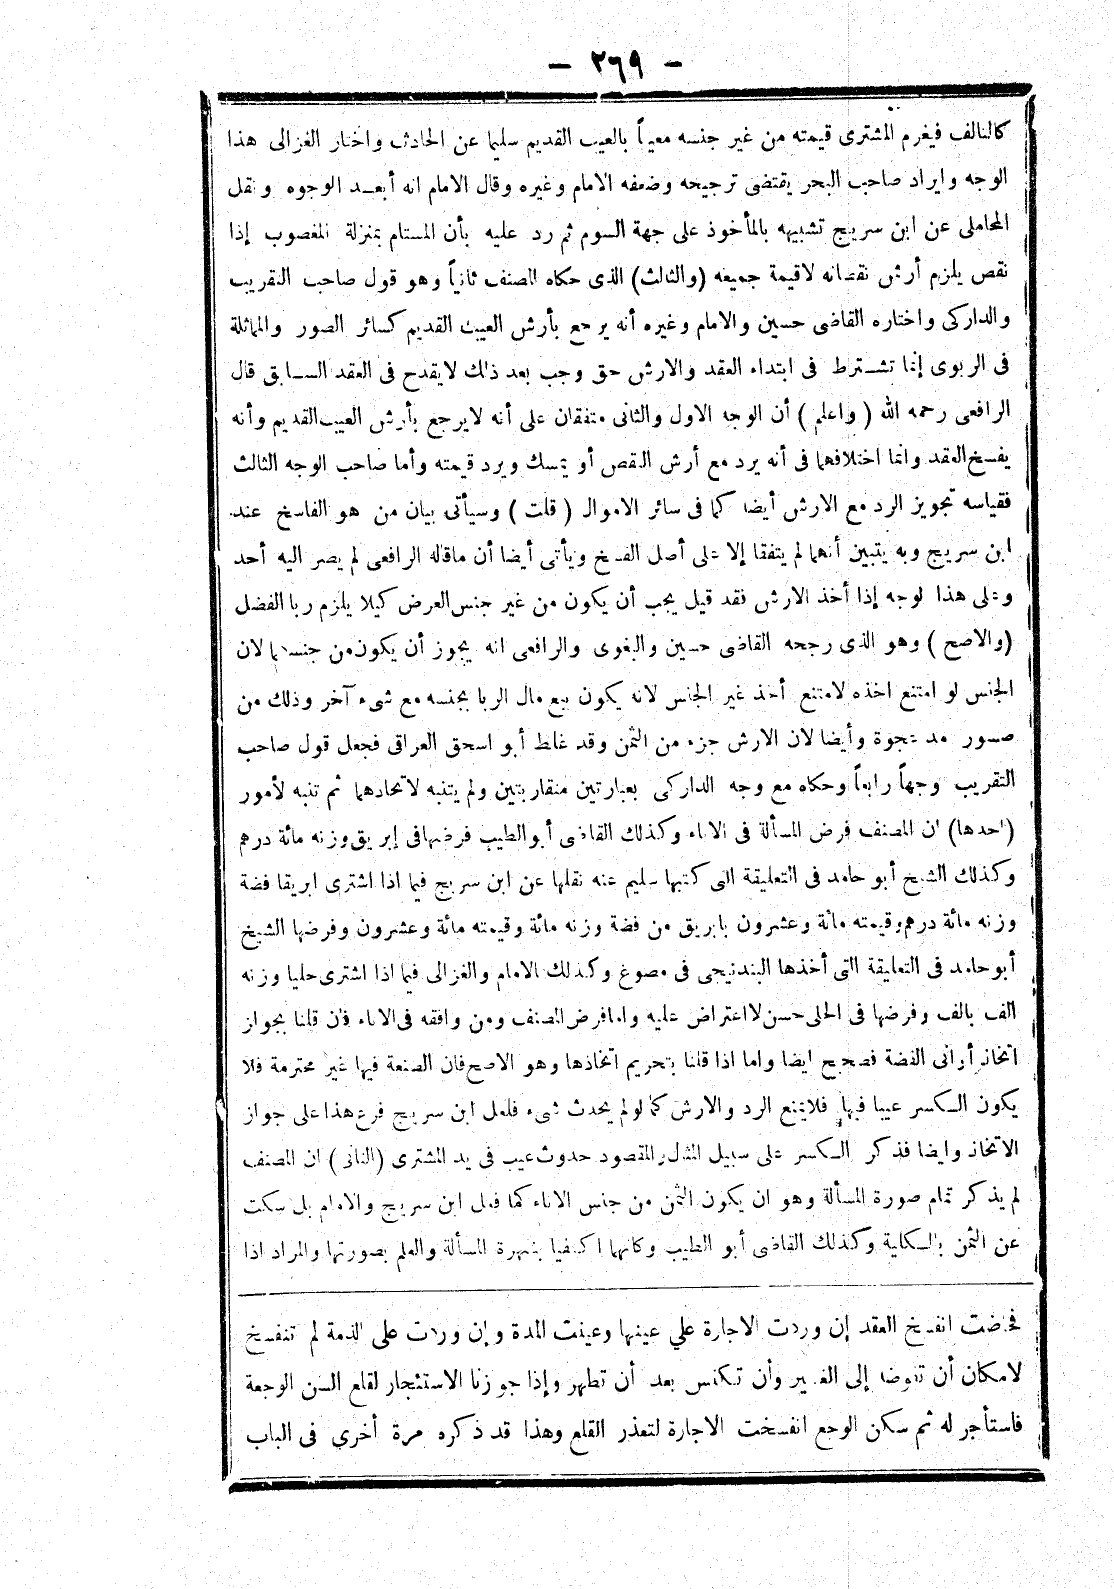 - ٢٦٩ -
كالتالف فيغرم المشترى قيمته من غير جنسه معيباً بالعيب القديم سليما عن الحادث واختار الغزالى هذا
الوجه وايراد صاحب البحر يقتضى ترجيحه وضعفه الامام وغيره وقال الامام انه أبعد الوجوه ونقل
المحاملى عن ابن سريج تشبيهه بالمأخوذ على جهة السوم ثم رد عليه بأن المستام بمنزلة المغصوب إذا
نقص يلزم أرش نقصانه لاقيمة جميعه (والثالث) الذى حكاه المصنف ثانياً وهو قول صاحب التقريب
والداركى واختاره القاضى حسين والامام وغيره أنه يرجع بأرش العيب القديم كسائر الصور والمماثلة
فى الربوى إنما تشترط فى ابتداء العقد والارش حق وجب بعد ذلك لايقدح فى العقد السابق قال
الرافعى رحمه الله (واعلم) أن الوجه الاول والثانى متفقان على أنه لايرجع بأرش العيب القديم وأنه
يفسخ العقد وانما اختلافهما فى أنه يرد مع أرش النقص أو يمسك ويرد قيمته وأما صاحب الوجه الثالث
فقياسه تجويز الرد مع الارش أيضا كما فى سائر الاموال (قلت) وسيأتى بيان من هو الفاسخ عند
ابن سريج وبه يتبين أنهما لم يتفقا إلا على أصل الفسخ ويأتى أيضا أن ماقاله الرافعى لم يصر اليه أحد
وعلى هذا لوجه إذا أخذ الارش فقد قيل يجب أن يكون من غير جنس العرض كيلا يلزم ربا الفضل
(والاصح) وهو الذى رجحه القاضى حسين والبغوى والرافعى انه يجوز أن يكون من جنسهما لان
الجنس لو امتنع اخذه لامتنع أخذ غير الجنس لانه يكون بيع مال الربا بجنسه مع شىء آخر وذلك من
صور مد عجوة وأيضا لان الارش جزء من الثمن وقد غلط أبو اسحق العراقى فجعل قول صاحب
التقريب وجهاً رابعاً وحكاه مع وجه الداركى بعبارتين متقاربتين ولم يتنبه لاتحادهما ثم تنبه لأمور
(احدها) ان المصنف فرض المسألة فى الاناء وكذلك القاضى أبو الطيب فرضها فى إبريق وزنه مائة درهم
وكذلك الشيخ أبو حامد فى التعليقة التى كتبها سليم عنه نقلها عن ابن سريج فيما اذا اشترى ابريقا فضة
وزنه مائة درهم وقيمته مائة وعشرون بابريق من فضة وزنه مائة وقيمته مائة وعشرون وفرضها الشيخ
أبو حامد فى التعليقة التى أخذها البندنيجى فى مصوغ وكذلك الامام والغزالى فيما اذا اشترى حليا وزنه
الف بالف وفرضها فى الحلى حسن لااعتراض عليه واما فرض المصنف ومن وافقه فى الاناء فان قلنا بجواز
اتخاذ أوانى الفضة فصحيح ايضا واما اذا قلنا بتحريم اتخاذها وهو الاصح فان الصنعة فيها غير محترمة فلا
يكون الكسر عيبا فيها فلا يمتنع الرد والارش كما لو لم يحدث شىء فلعل ابن سريج فرع هذا على جواز
الاتخاذ وايضا فذكر الكسر على سبيل المثال والمقصود حدوث عيب فى يد المشترى (الثانى) ان المصنف
لم يذكر تمام صورة المسألة وهو ان يكون الثمن من جنس الاناء كما فعل ابن سريج والامام بل سكت
عن الثمن بالكلية وكذلك القاضى أبو الطيب وكأنهما اكتفيا بشهرة المسألة والعلم بصورتها والمراد اذا
فحاضت انفسخ العقد إن وردت الاجارة علي عينها وعينت المدة وإن وردت على الذمة لم تنفسخ
لامكان أن تفوضه إلى الغير وأن تكنس بعد أن تطهر وإذا جوزنا الاستئجار لقلع السن الوجعة
فاستأجر له ثم سكن الوجع انفسخت الاجارة لتعذر القلع وهذا قد ذكره مرة أخرى فى الباب